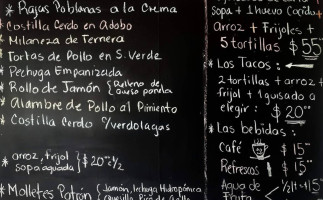 * Rajas Poblanas a la Crema
* Costilla Cerdo en Adobo
* Milaneza de Ternera
* Tortas de Pollo en S. Verde
* Pechuga Empanizada
* Rollo de Jamón { Relleno de queso panela
* Alambre de Pollo al Pimiento
* Costilla Cerdo c/verdolagas
* arroz, frijol sopa aguada } $20 c/u
* Molletes Patrón { Jamón, lechuga Hidropónica
sopa + 1 huevo Cocido +
arroz + Frijoles +
5 tortillas $ 55
* Los Tacos:
2 tortillas + arroz +
frijol + 1 guisado a
elegir: $ 20.00
* Las bebidas:
Café $ 15
Refrescos $ 15
Agua de
Fruta
1/2 Lt $15